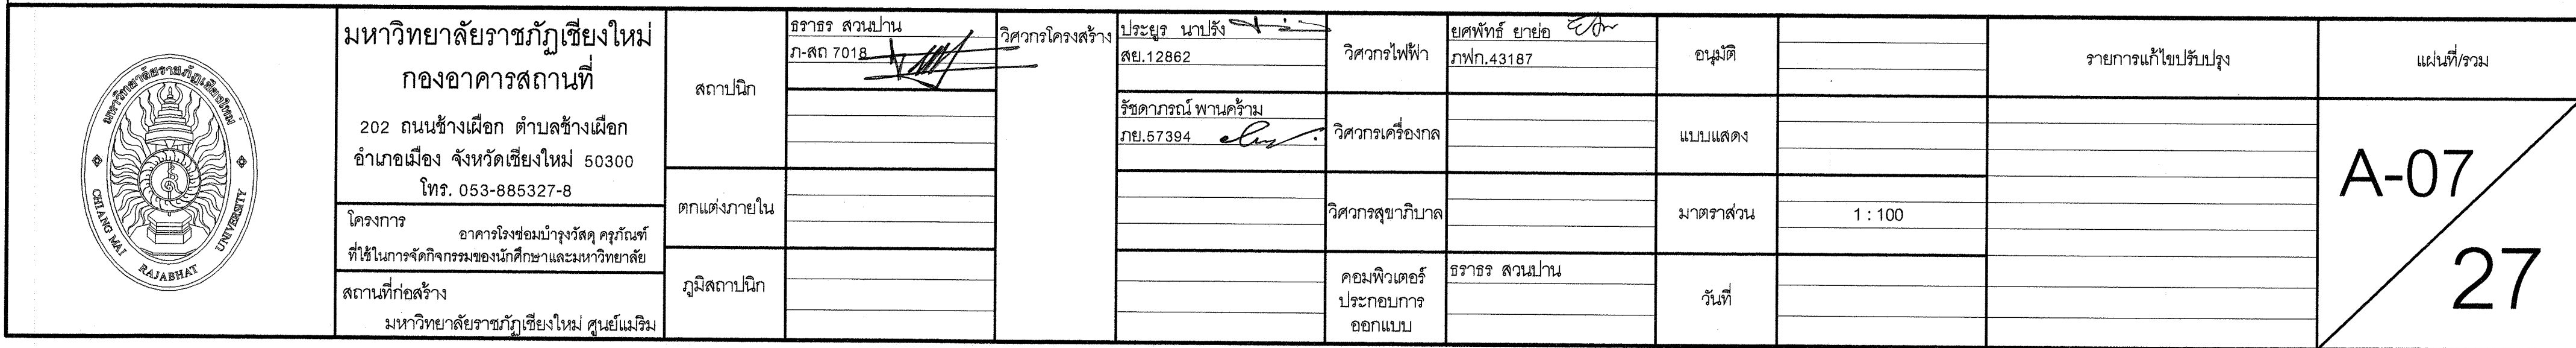 มหาวิทยาลัยราชภัฏเชียงใหม่
CHIANG MAI RAJABHAT UNIVERSITY
มหาวิทยาลัยราชภัฏเชียงใหม่
กองอาคารสถานที่
202 ถนนช้างเผือก ตำบลช้างเผือก
อำเภอเมือง จังหวัดเชียงใหม่ 50300
โทร. 053-885327-8
โครงการ
อาคารโรงซ่อมบำรุงวัสดุ ครุภัณฑ์
ที่ใช้ในการจัดกิจกรรมของนักศึกษาและมหาวิทยาลัย
สถานที่ก่อสร้าง
มหาวิทยาลัยราชภัฏเชียงใหม่ ศูนย์แม่ริม
สถาปนิก
ธราธร สวนปาน
ภ-สถ 7018
ตกแต่งภายใน
ภูมิสถาปนิก
วิศวกรโครงสร้าง
ประยูร นาปรัง
สย.12862
รัชดาภรณ์ พานคร้าม
ภย.57394
วิศวกรไฟฟ้า
ยศพัทธ์ ยาย่อ
ภฟก.43187
วิศวกรเครื่องกล
วิศวกรสุขาภิบาล
คอมพิวเตอร์
ประกอบการ
ออกแบบ
ธราธร สวนปาน
อนุมัติ
แบบแสดง
มาตราส่วน
1 : 100
วันที่
รายการแก้ไขปรับปรุง
แผ่นที่/รวม
A-07
27